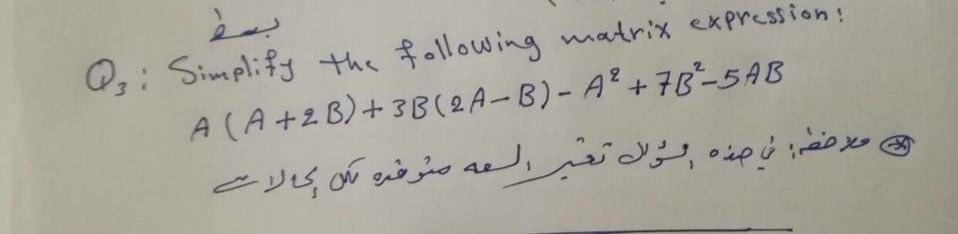 بسط
Q3: Simplify the following matrix expression:
A(A+2B)+3B(2A-B)-A²+7B²-5AB
ملاحظه: في هذه السؤال تعتبر السعه متوفره لكل الحالات